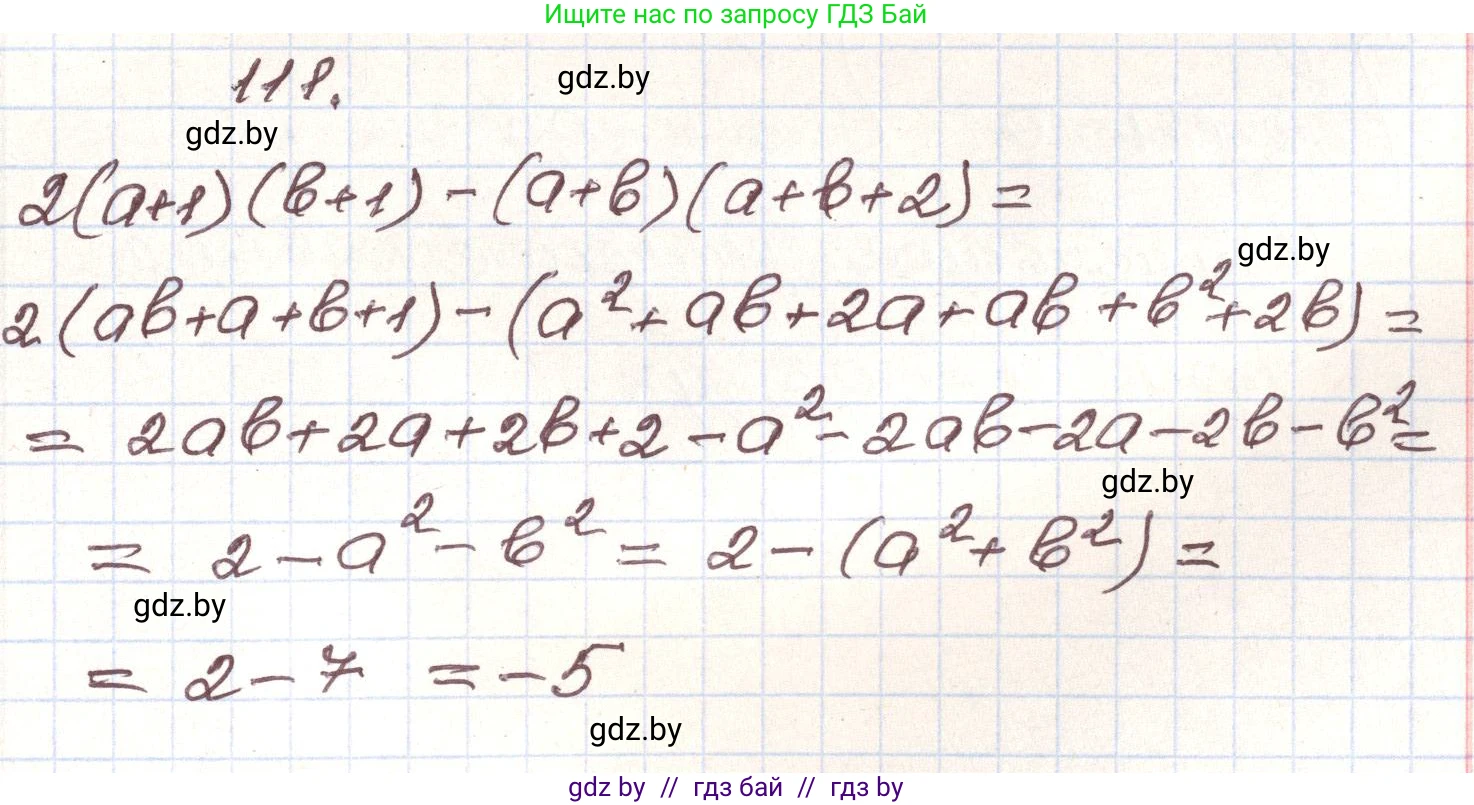 Ищите нас по запросу ГДЗ Бай
118.
gdz.by
gdz.by
2(a+1)(b+1)-(a+b)(a+b+2)=
gdz.by
2(ab+a+b+1)-(a²+ab+2a+ab+b²+2b)=
= 2ab+2a+2b+2-a²-2ab-2a-2b-b²=
gdz.by
= 2-a²-b²=2-(a²+b²)=
gdz.by
= 2-7 =-5
gdz.by
gdz by // гдз бай // гдз by